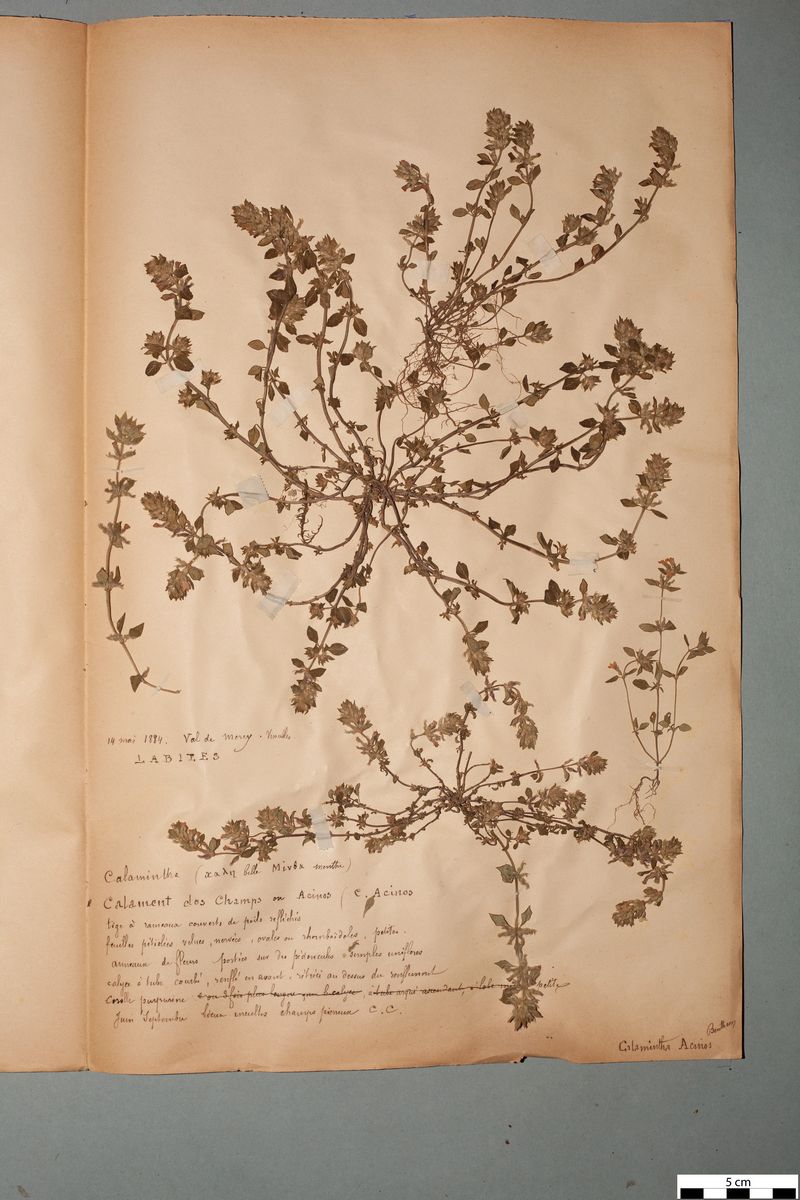 14 mai 1884. Val de morey. Vesoul
LABIÉES
Calamintha (καλη belle Μινθα menthe)
Calament des Champs ou Acinos (C. Acinos
tige à rameaux couverts de poils réfléchis
feuilles pétiolées velues, nervées, ovales ou rhomboïdales. petites.
anneaux de fleurs portées sur des pédoncules simples uniflores
calyce à tube courbé, renflé en avant, rétréci au dessus du renflement
Corolle purpurine 2 ou 3 fois plus longue que le calyce, à tube arqué ascendant, à lobe petite
Juin Septembre lieux incultes champs pierreux C. C.
Calamintha Acinos
Bentham
5 cm